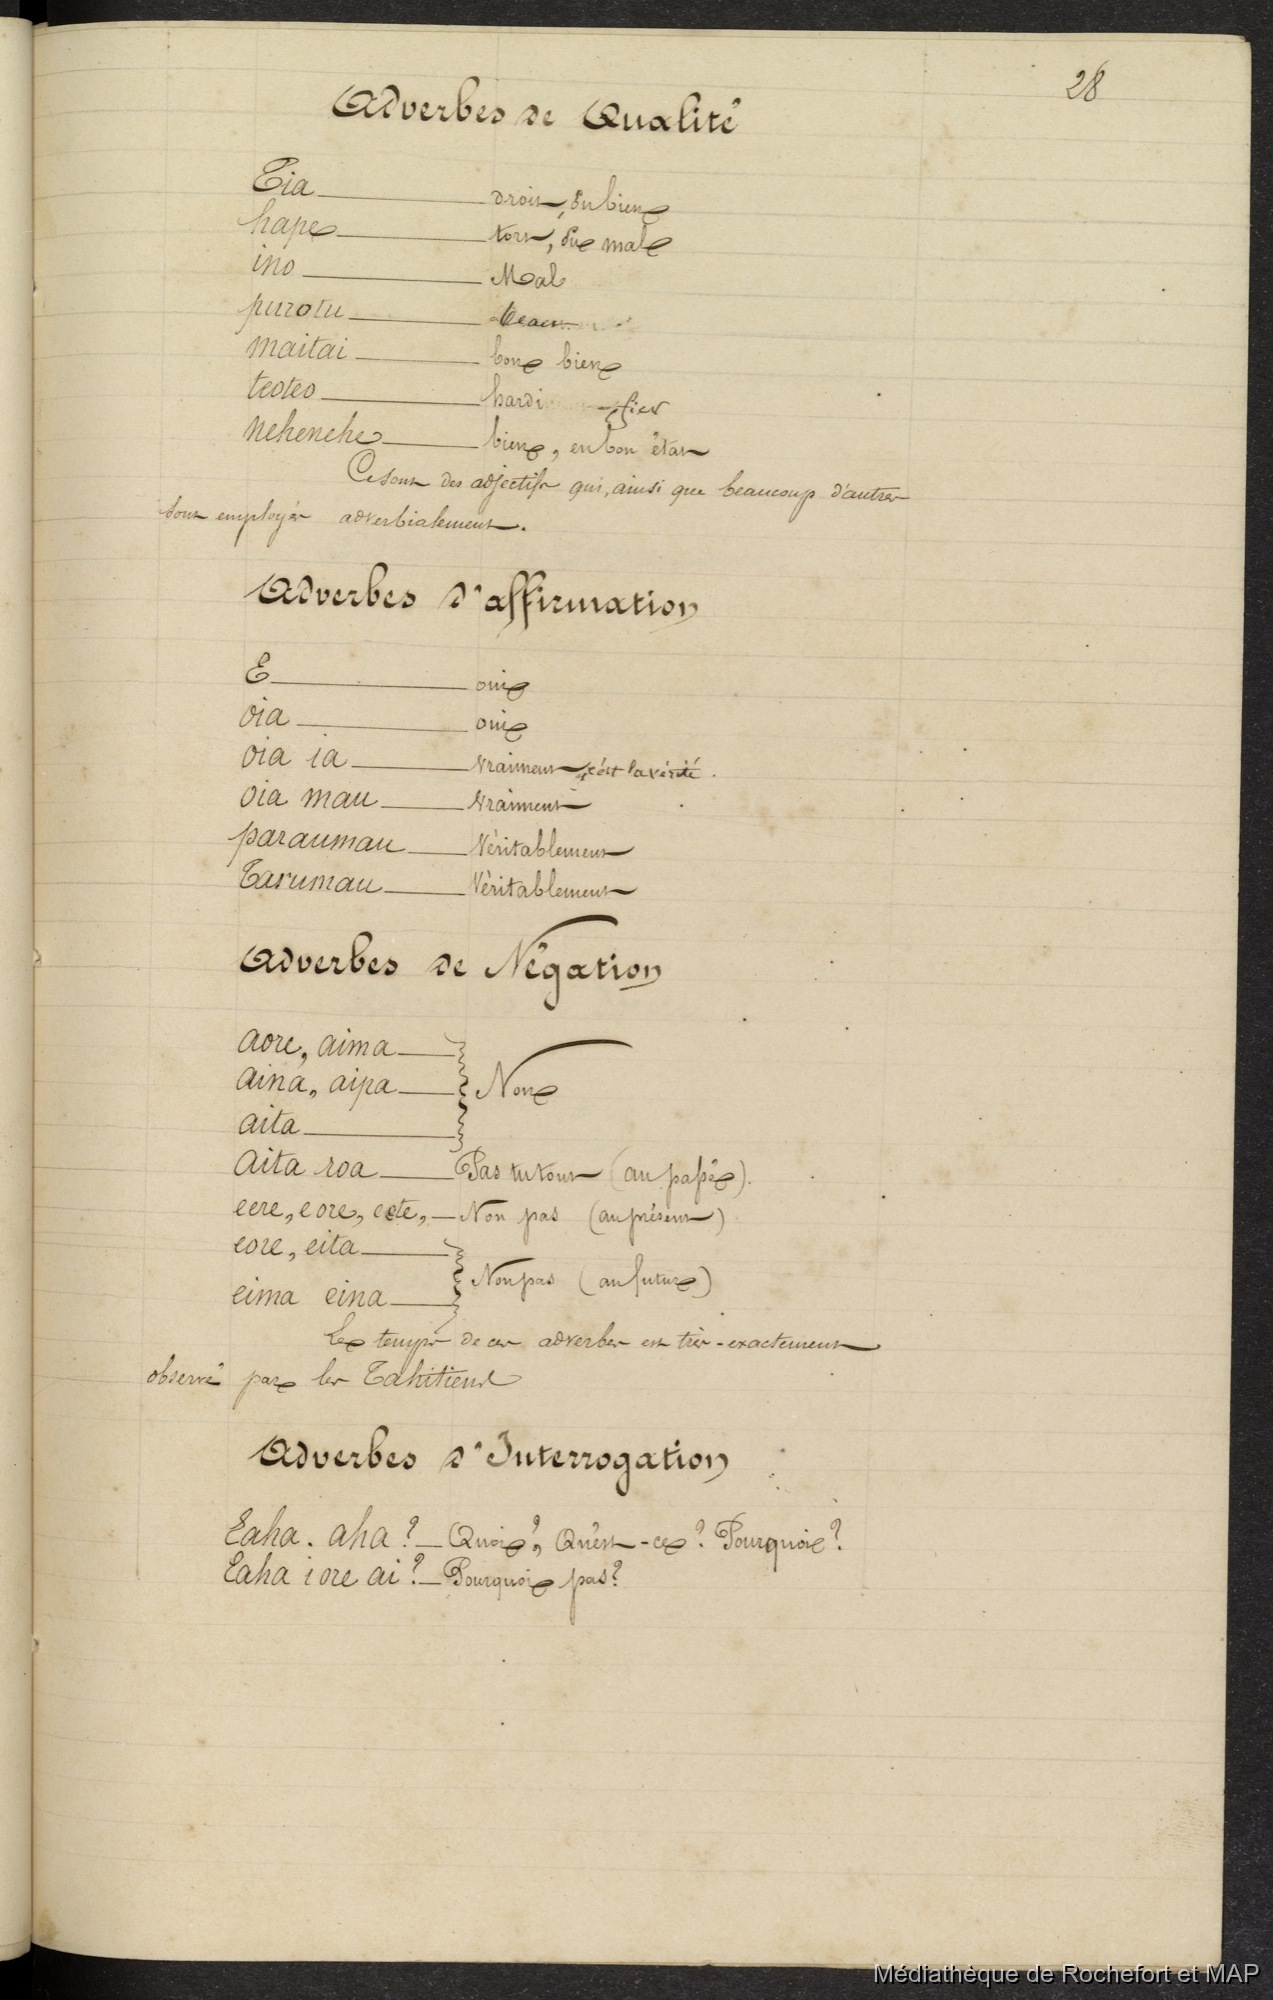 28
Adverbes de Qualité
Tia — droit, du bien
hape — tort, du mal
ino — Mal
purotu — beau
maitai — bon bien
teoteo — hardi fier
nehenehe — bien, en bon état
Ce sont des adjectifs qui, ainsi que beaucoup d'autres
sont employés adverbialement.
Adverbes d'affirmation
E — oui
oia — oui
oia ia — vraiment, c'est la vérité.
oia mau — vraiment
paraumau — Véritablement
Tarumau — Véritablement
Adverbes de Négation
aore, aima —
aina, aipa — Non
aita —
aita roa — Pas du tout (au passé).
eere, eore, eete, — Non pas (au présent)
eore, eita —
eima eina — Non pas (au futur)
Le temps de ces adverbes est très-exactement
observé par les Tahitiens
Adverbes d'Interrogation
Eaha. aha? — Quoi?, Qu'est-ce? Pourquoi?
Eaha i ore ai? — Pourquoi pas?
Médiathèque de Rochefort et MAP